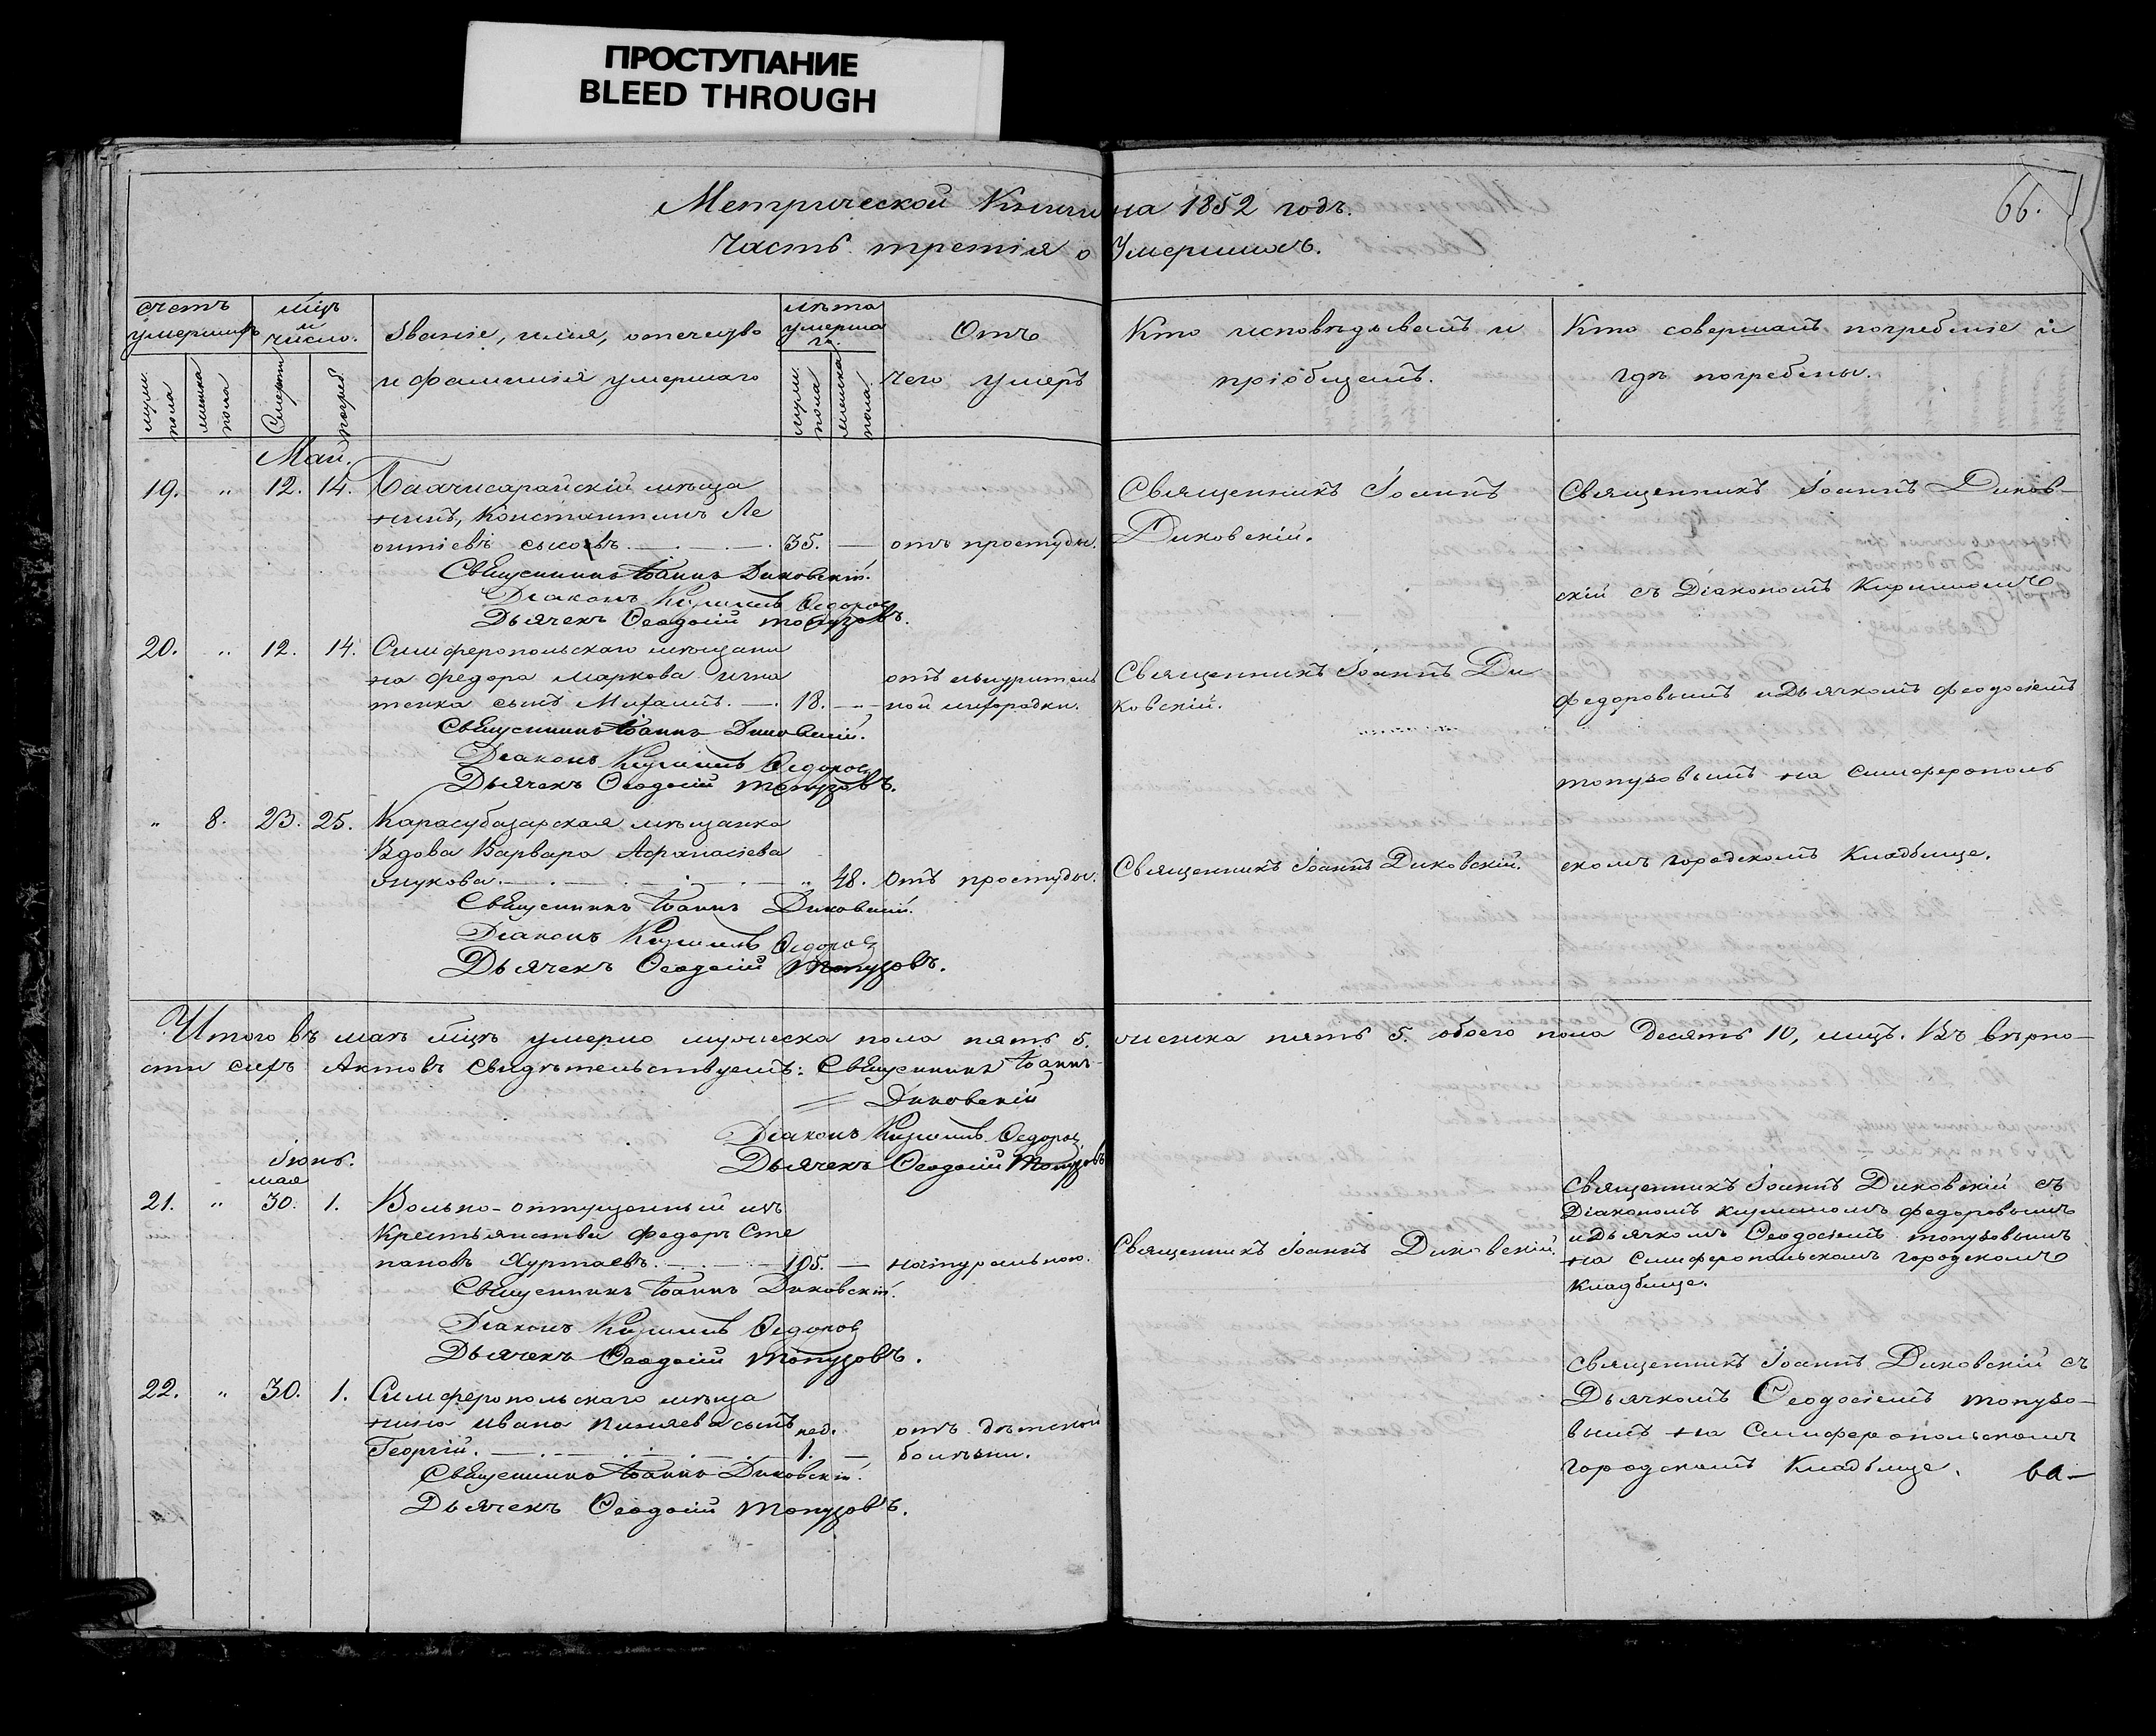 ПРОСТУПАНИЕ
BLEED THROUGH
Метрической Книги на 1852 годъ.
66.
Часть третія о Умершихъ.
счетъ умершихъ
мцъ и число.
Званіе, имя, отечество и фамилія умершаго
лѣта умершаго.
Отъ чего умеръ
Кто исповѣдывалъ и пріобщалъ.
Кто совершалъ погребеніе и гдѣ погребены.
муж. пола
женска пола
Смерти
погреб
муж. пола
женска пола.
Май.
19. " 12. 14. Бахчисарайскій мѣща
нинъ, Константинъ Ле
онтіевъ сыковъ. 35. — отъ простуды.
Священникъ Іоаннъ
Диковскій.
Священникъ Іоаннъ Диковскій.
Діаконъ Кириллъ Ѳедоровъ
Дьячекъ Ѳеодосій Топузовъ.
20. " 12. 14. Симферопольскаго мѣщани
на Федора Маркова Игна
тенка сынъ Михаилъ. 18. — отъ изнуритель
ной лихорадки.
Священникъ Іоаннъ Ди
ковскій.
Священникъ Іоаннъ Диковскій.
Діаконъ Кириллъ Ѳедоровъ
Дьячекъ Ѳеодосій Топузовъ.
" 8. 23. 25. Карасубазарская мѣщанка
Вдова Варвара Афанасіева
" 48. Отъ простуды.
Священникъ Іоаннъ Диковскій.
Священникъ Іоаннъ Диковскій.
Діаконъ Кириллъ Ѳедоровъ
Дьячекъ Ѳеодосій Топузовъ.
Священникъ Іоаннъ Диков-
скій съ Діакономъ Кирилломъ
Федоровымъ и Дьячкомъ Феодосіемъ
топузовымъ на симферополь
скомъ городскомъ Кладбище.
Итого въ маѣ мцѣ умерло мужеска пола пять 5. женска пять 5. обоего пола Десять 10, лицъ. Въ вѣрно-
сти сихъ Актовъ Свидѣтельствуемъ: Священникъ Іоаннъ
Диковскій
Діаконъ Кириллъ Ѳедоровъ
Дьячекъ Ѳеодосій Топузовъ
Іюнь.
мая
21. " 30. 1. Вольно-отпущенный изъ
Крестьянства Федоръ Сте
пановъ Хуртаевъ. 105. — натуральною.
Священникъ Іоаннъ Диковскій.
Священникъ Іоаннъ Диковскій.
Діаконъ Кириллъ Ѳедоровъ
Дьячекъ Ѳеодосій Топузовъ.
Священникъ Іоаннъ Диковскій съ
Діакономъ кирилломъ федоровымъ
и Дьячкомъ Ѳеодосіемъ топузовымъ
на симферопольскомъ городскомъ
кладбище.
22. " 30. 1. Симферопольскаго мѣща
нина Ивана сынъ
Георгій. нед. 1. — отъ дѣтской
болѣзни.
Священникъ Іоаннъ Диковскій.
Дьячекъ Ѳеодосій Топузовъ.
Священникъ Іоаннъ Диковскій съ
Дьячкомъ Ѳеодосіемъ топузо-
вымъ на Симферопольскомъ
городскомъ Кладбище.
ва-